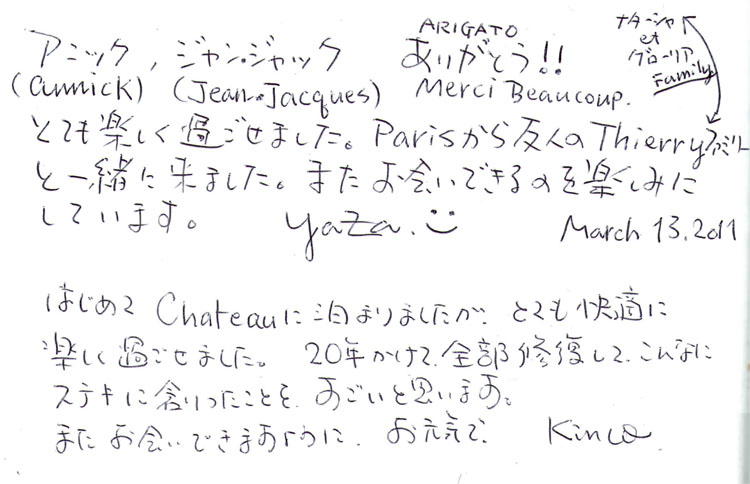 アニック, ジャン・ジャック ありがとう!!
ARIGATO
(annick) (Jean・Jacques) Merci Beaucoup.
ナターシャ
et
グローリア
Family
とても楽しく過ごせました。Parisから友人のThierryファミリー
と一緒に来ました。またお会いできるのを楽しみに
しています。 yaza. March 13. 2011
はじめてChateauに泊まりましたが、とても快適に
楽しく過ごせました。20年かけて、全部修復して、こんなに
ステキになったことを、すごいと思います。
またお会いできますように、お元気で、 Kinco